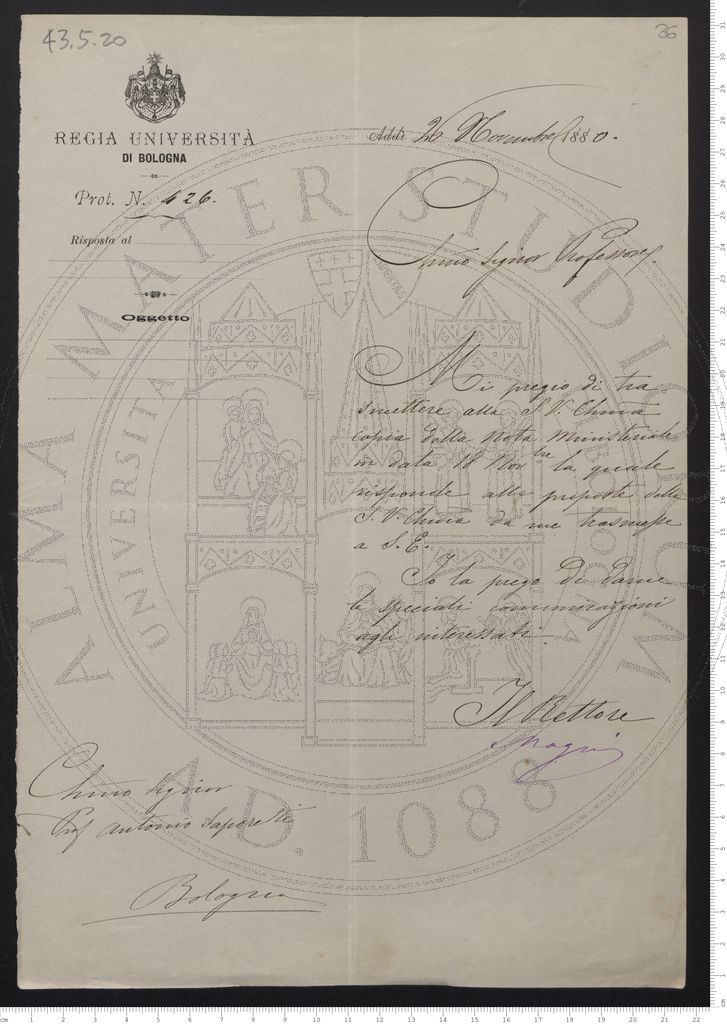 43.5.20
26
REGIA UNIVERSITÀ
DI BOLOGNA
Prot. N. 426.
Risposta al
Oggetto
Addì 26 Novembre 1880.
Chmo Signor Professore,
Mi pregio di tra
smettere alla S. V. Chma
copia della Nota Ministeriale
in data 18 Novbre la quale
risponde alla proposta della
S. V. Chma da me trasmessa
a S. E.
Io la prego di darne
le speciali comunicazioni
agli interessati.
Il Rettore
Magni
Chmo Signor
Prof Antonio Saporetti
Bologna
ALMA MATER STUDIORUM
A.D. 1088